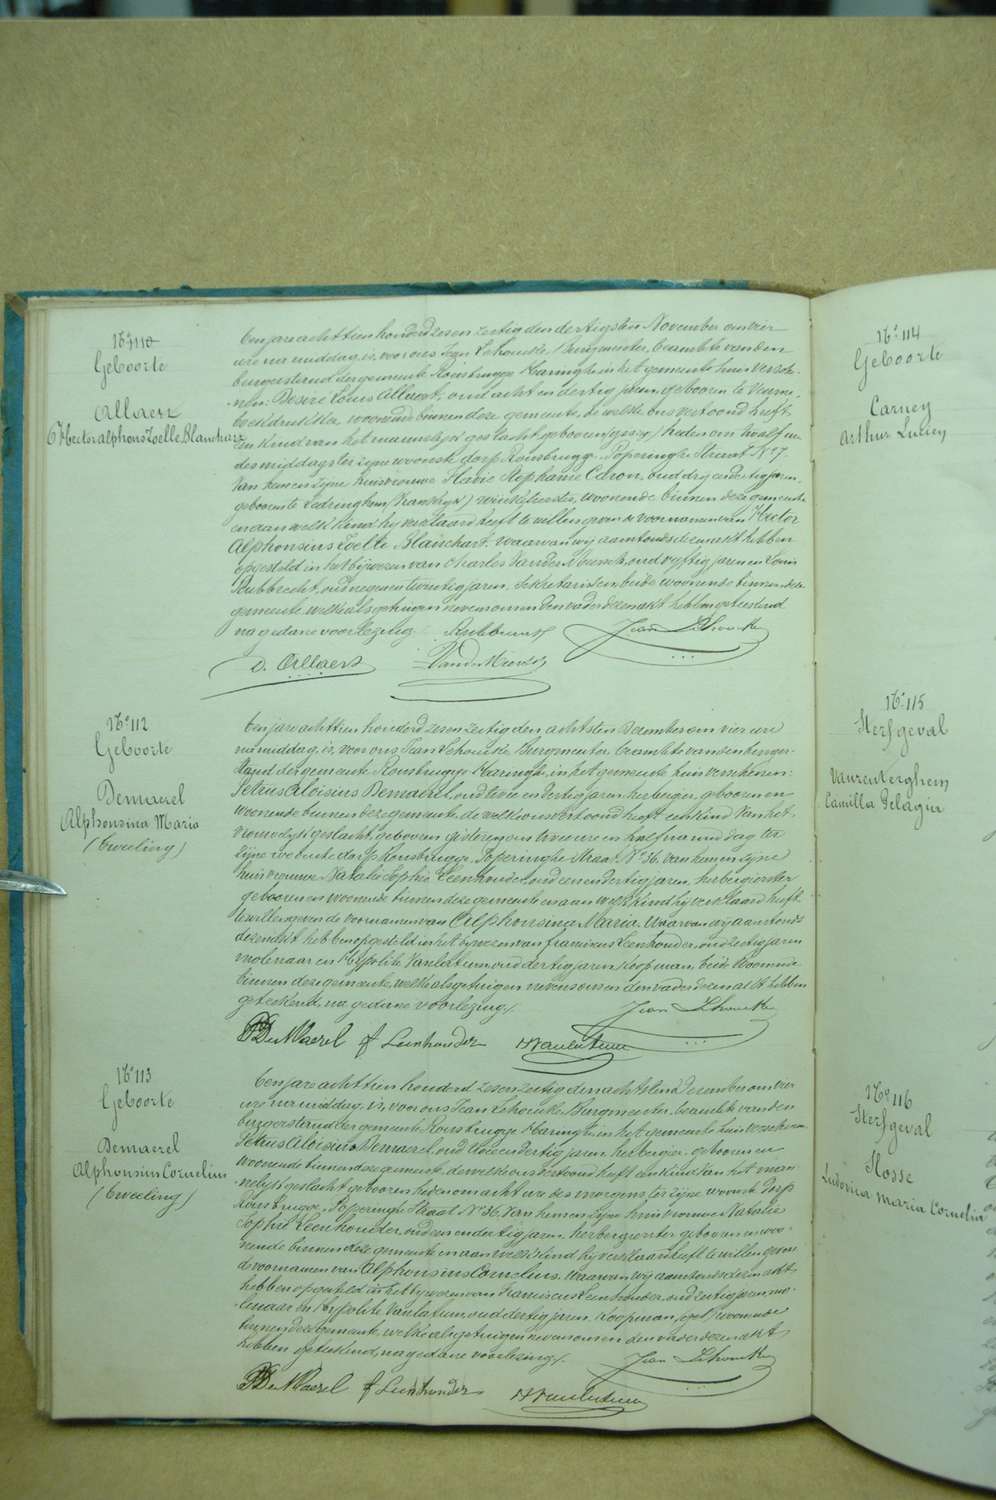 No 110
Geboorte
Allaert
Hector alphons Zoelle Blanchart
Een jare achttien honderd zesen zestig den dertigsten November om vier
ure na middag, is voor ons Jean Schoucke, Burgmeester, beambte van den
burgerstand der gemeente Rousbrugge Haringhe in het gemeente huis versche-
nen: Desiré Louis Allaert, oud acht en dertig jaren, geboren te Veurne,
woonende binnen deze gemeente, de welke ons vertoond heeft
een kind van het mannelijk geslacht geboren heden om twalf uren
des middags ter zijne woonste dorp Rousbrugge, Poperinghe Straat No 7.
van hem en zijne huisvrouwe Stephanie Caron, oud drij en dertig jaren,
geboren te Ledringhem (Vrankrijk) winkelierster, woonende binnen deze gemeente
en aan welk kind hij verklaard heeft te willen geven de voornamen van Hector
Alphonsius Zoelle Blanchart. Waarvan wij aanstonds dezen akt hebben
opgesteld in het bijwezen van Charles Vander Meersch, oud vyftig jaren en Louis
Rubbrecht, oud negen en twintig jaren, sekretaris en beide woonende binnen deze
gemeente, welke als getuigen nevens ons en den vader dezen akt hebben geteekend
na gedane voorlezing.
D. Allaert
No 112
Geboorte
Demaerel
Alphonsina Maria
(tweeling)
Een jare achttien honderd zesen zestig den achtsten December om vier ure
na middag, is voor ons Jean Schoucke, Burgmeester, beambte van den burger-
stand der gemeente Rousbrugge Haringhe, in het gemeente huis verschenen:
Petrus Aloisius Demaerel, oud twee en dertig jaren, herbergier, geboren en
woonende binnen deze gemeente, de welke ons vertoond heeft een kind van het
vrouwelijk geslacht, geboren gisteren om twee ure en half na middag ter
zijne woonste dorp Rousbrugge, Poperinghe Straat, No 36, van hem en zijne
huisvrouwe Natalie Sophie Leenhouder, oud een en dertig jaren, herbergierster
geboren en woonende binnen deze gemeente en aan welk kind hij verklaard heeft
te willen geven de voornamen van Alphonsina Maria. Waarvan wij aanstonds
dezen akt hebben opgesteld in het bijwezen van Franciscus Leenhouder, oud zestig jaren
molenaar en Hypolite Vanlatum, oud dertig jaren, koopman, beide woonende
binnen deze gemeente, welke als getuigen nevens ons en den vader dezen akt hebben
geteekend, na gedane voorlezing.
DeMaerel f Leenhouder H Vanlatum
No 113
Geboorte
Demaerel
Alphonsius Cornelius
(tweeling)
Een jare achttien honderd zesen zestig den achtsten December om vier
ure na middag, is voor ons Jean Schoucke, Burgmeester, beambte van den
burgerstand der gemeente Rousbrugge Haringhe in het gemeente huis verschenen
Petrus Aloisius Demaerel, oud twee en dertig jaren, herbergier, geboren en
woonende binnen deze gemeente, de welke ons vertoond heeft een kind van het man-
nelijk geslacht geboren heden om acht ure des morgens ter zijne woonste dorp
Rousbrugge, Poperinghe Straat No 36, van hem en zijne huisvrouwe Natalie
Sophie Leenhouder, oud een en dertig jaren, herbergierster geboren en woo-
nende binnen deze gemeente en aan welk kind hij verklaard heeft te willen geven
de voornamen van Alphonsius Cornelius. Waarvan wij aanstonds dezen akt
hebben opgesteld in het bijwezen van Franciscus Leenhouder, oud zestig jaren, mo-
lenaar en Hypolite Vanlatum, oud dertig jaren, koopman, woonende
binnen deze gemeente, welke als getuigen nevens ons en den vader dezen akt
hebben geteekend, na gedane voorlezing.
DeMaerel f Leenhouder H Vanlatum
No 114
Geboorte
Carney
Arthur Lucien
No 115
Sterfgeval
Camilla Pelagie
No 116
Sterfgeval
Hosse
Ludovica Maria Cornelia